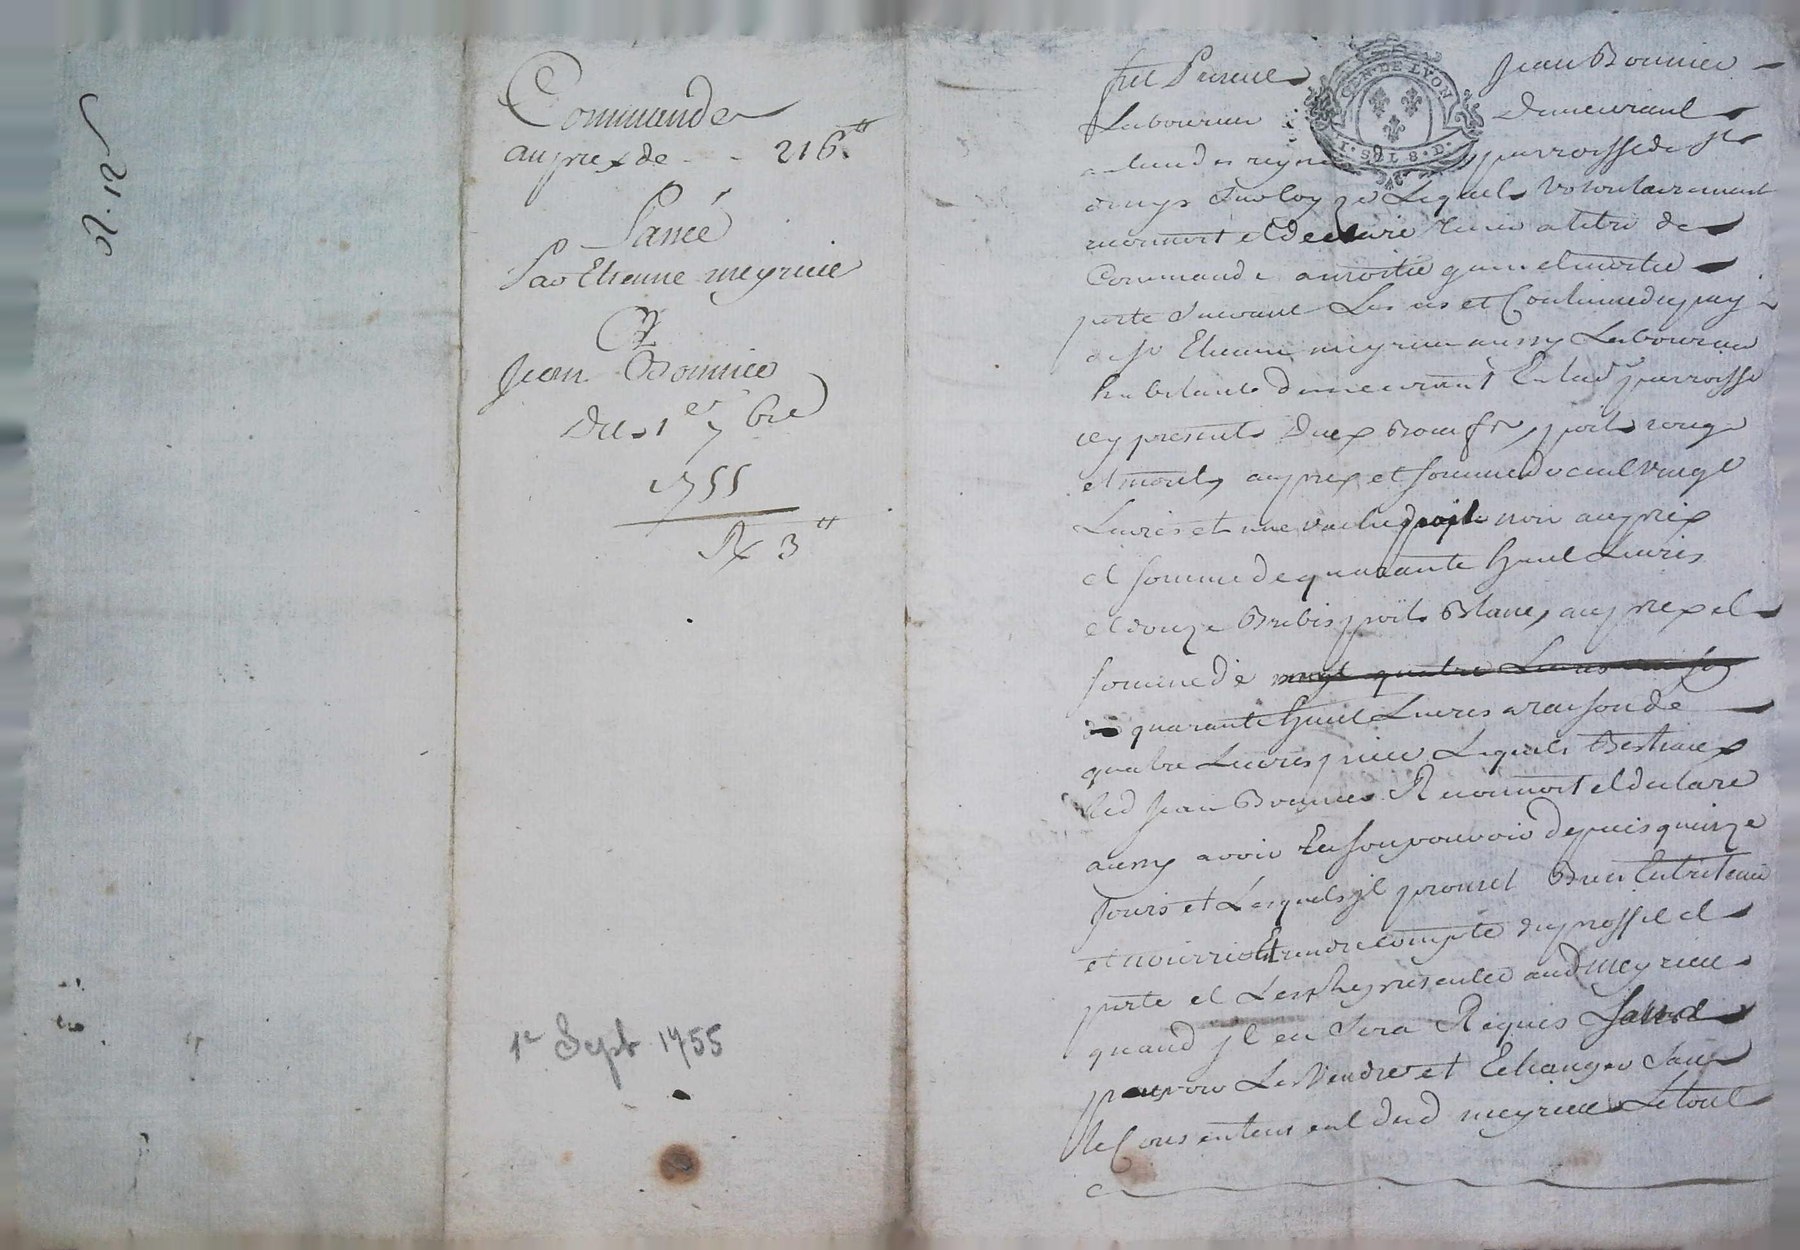 N. 12
Commande
au prix de - - 216.tt
Passé
Par Etienne meyrieu
Et
Jean Bonnier
Du 1er 7bre
1755
Rx 3tt
1r Sept 1755
fut Present Jean Bonnier
Laboureur Demeurant
parroisse de St
GEN. DE LYON
I. S. L 8. D.
Lequel Volontairement
reconnoit et declaire Tenir a titre de
Commande a moitié gain et moitié
perte suivant Les us et Coutume du pay
de Sr Etienne meyrieu aussy Laboureur
habitant Demeurant En lad parroisse
icy present Deux Boeufs, poil rouge
et au prix et somme de cent vingt
Livres et une vache poil noir au prix
et somme de quarante huit Livres
et douze Brebis poil Blanc, au prix et
somme de vingt quatre Livres
de quarante huit Livres a raison de
quatre Livres piece Lequels Bestiaux
led Jean Bonnier Reconnoit et declare
aussy avoir En son pouvoir depuis quinze
Jours et Lesquels jl promet Bien Entretenir
et nourrir Et rendre compte du proffit et
perte et Les Representer aud meyrieu
quand jl en sera Requis Sans
pouvoir Les Vendre et Echanger Sans
le Consentement dud meyrieu Le tout